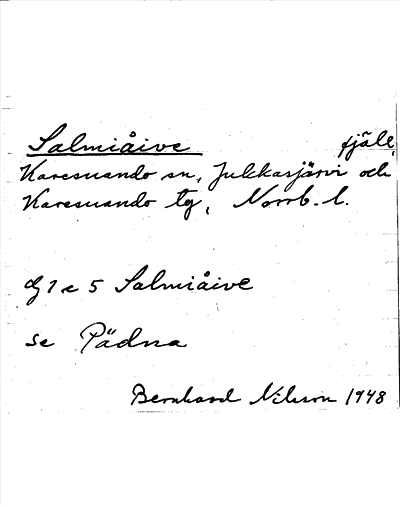 Salmiåive fjäll
Karesuando sn, Jukkasjärvi och
Karesuando tg, Norrb. l.
G 1 e 5 Salmiåive
se Pädna
Bernhard Nilsson 1948